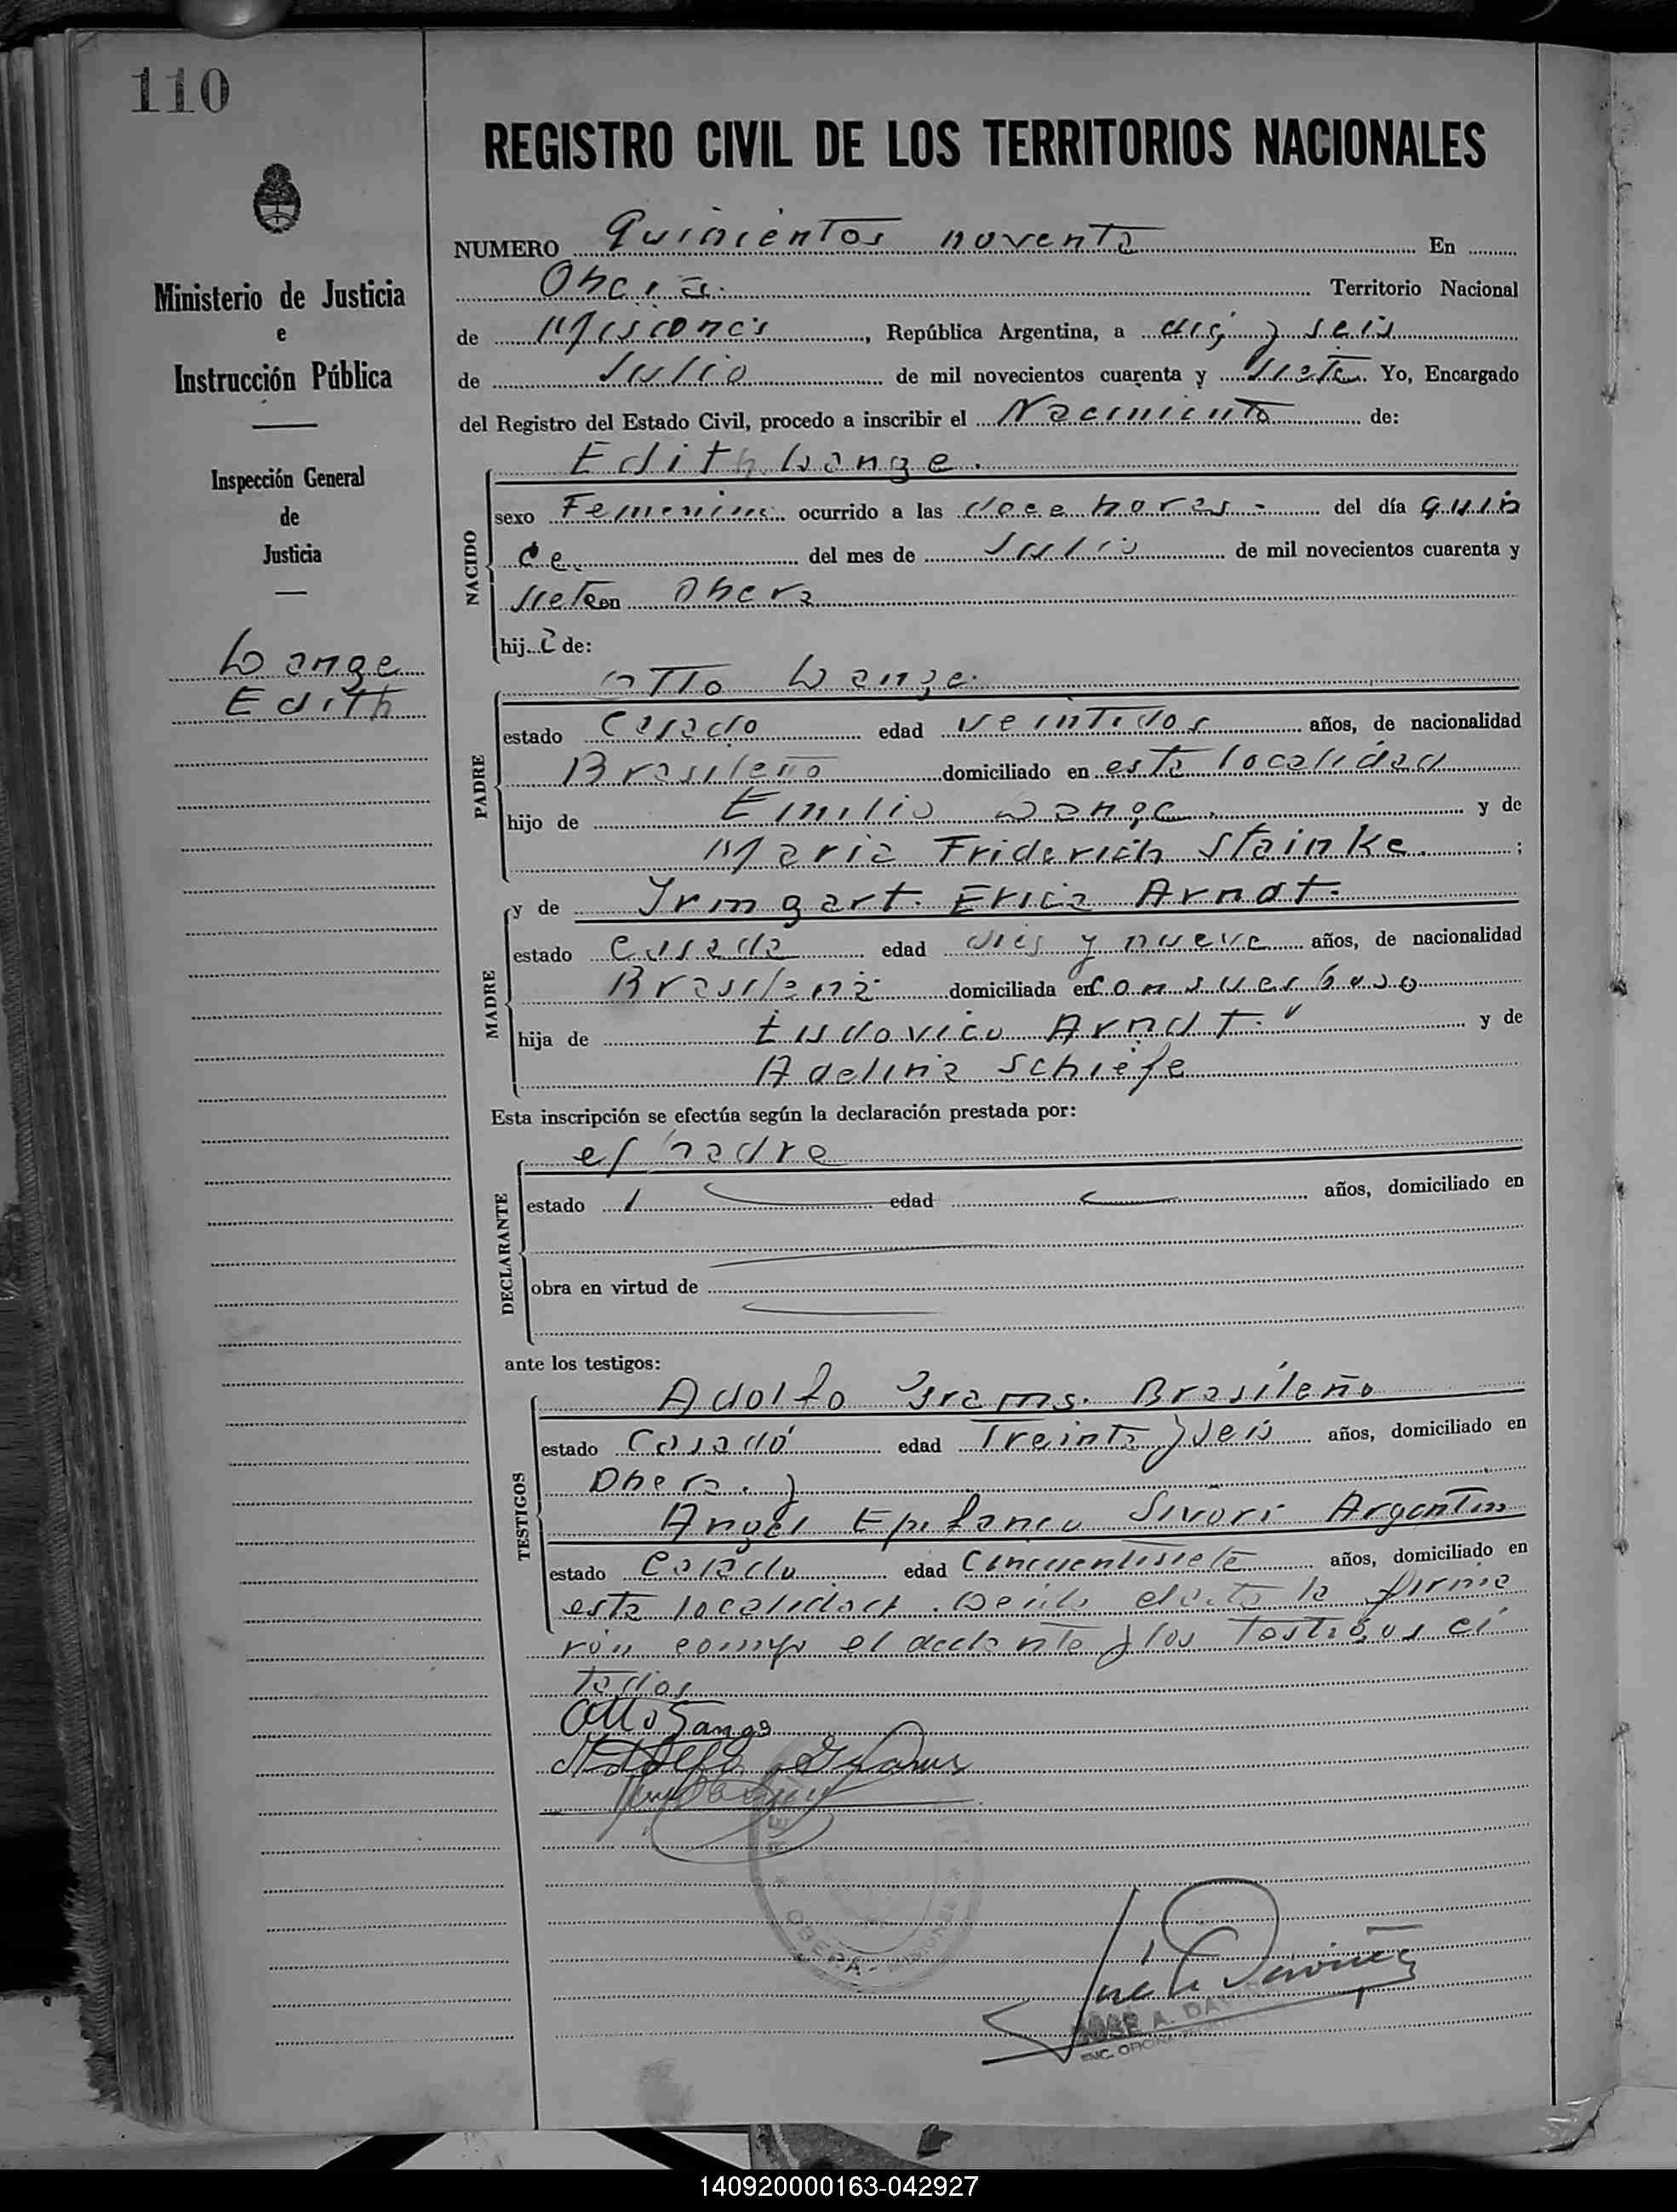 110
REGISTRO CIVIL DE LOS TERRITORIOS NACIONALES
Ministerio de Justicia
e
Instrucción Pública
Inspección General
de
Justicia
Lange
Edith
NUMERO Quinientos noventa En
Oberá Territorio Nacional
de Misiones, República Argentina, a diez y seis
de Julio de mil novecientos cuarenta y siete. Yo, Encargado
del Registro del Estado Civil, procedo a inscribir el Nacimiento de:
Edith Lange.
NACIDO
sexo Femenino ocurrido a las doce horas - del día quin
ce del mes de Julio de mil novecientos cuarenta y
siete en Obera
hija de:
Otto Lange.
PADRE
estado Casado edad veintidos años, de nacionalidad
Brasileño domiciliado en esta localidad
hijo de Emilio Lange. y de
Maria Friderich Stainke. ;
MADRE
y de Irmgart. Erica Arndt.
estado casada edad dies y nueve años, de nacionalidad
Brasilena domiciliada en con su esposo
hija de Ludovico Arndt. y de
Adelina Schiefe
Esta inscripción se efectúa según la declaración prestada por:
el padre
DECLARANTE
estado edad años, domiciliado en
obra en virtud de
ante los testigos:
TESTIGOS
Adolfo Grams. Brasileño
estado Casado edad Treinta y seis años, domiciliado en
Obera. y
Angel Epifanio Sivori Argentino
estado Casado edad Cincuentisiete años, domiciliado en
esta localidad. Leida el acta la firma
ron conmigo el declante y los Testigos ci
tados
Otto Lange
Adolfo Grams
OBERÁ - MISIONES
JOSE A. DAY
ENC. OFICINA
140920000163-042927